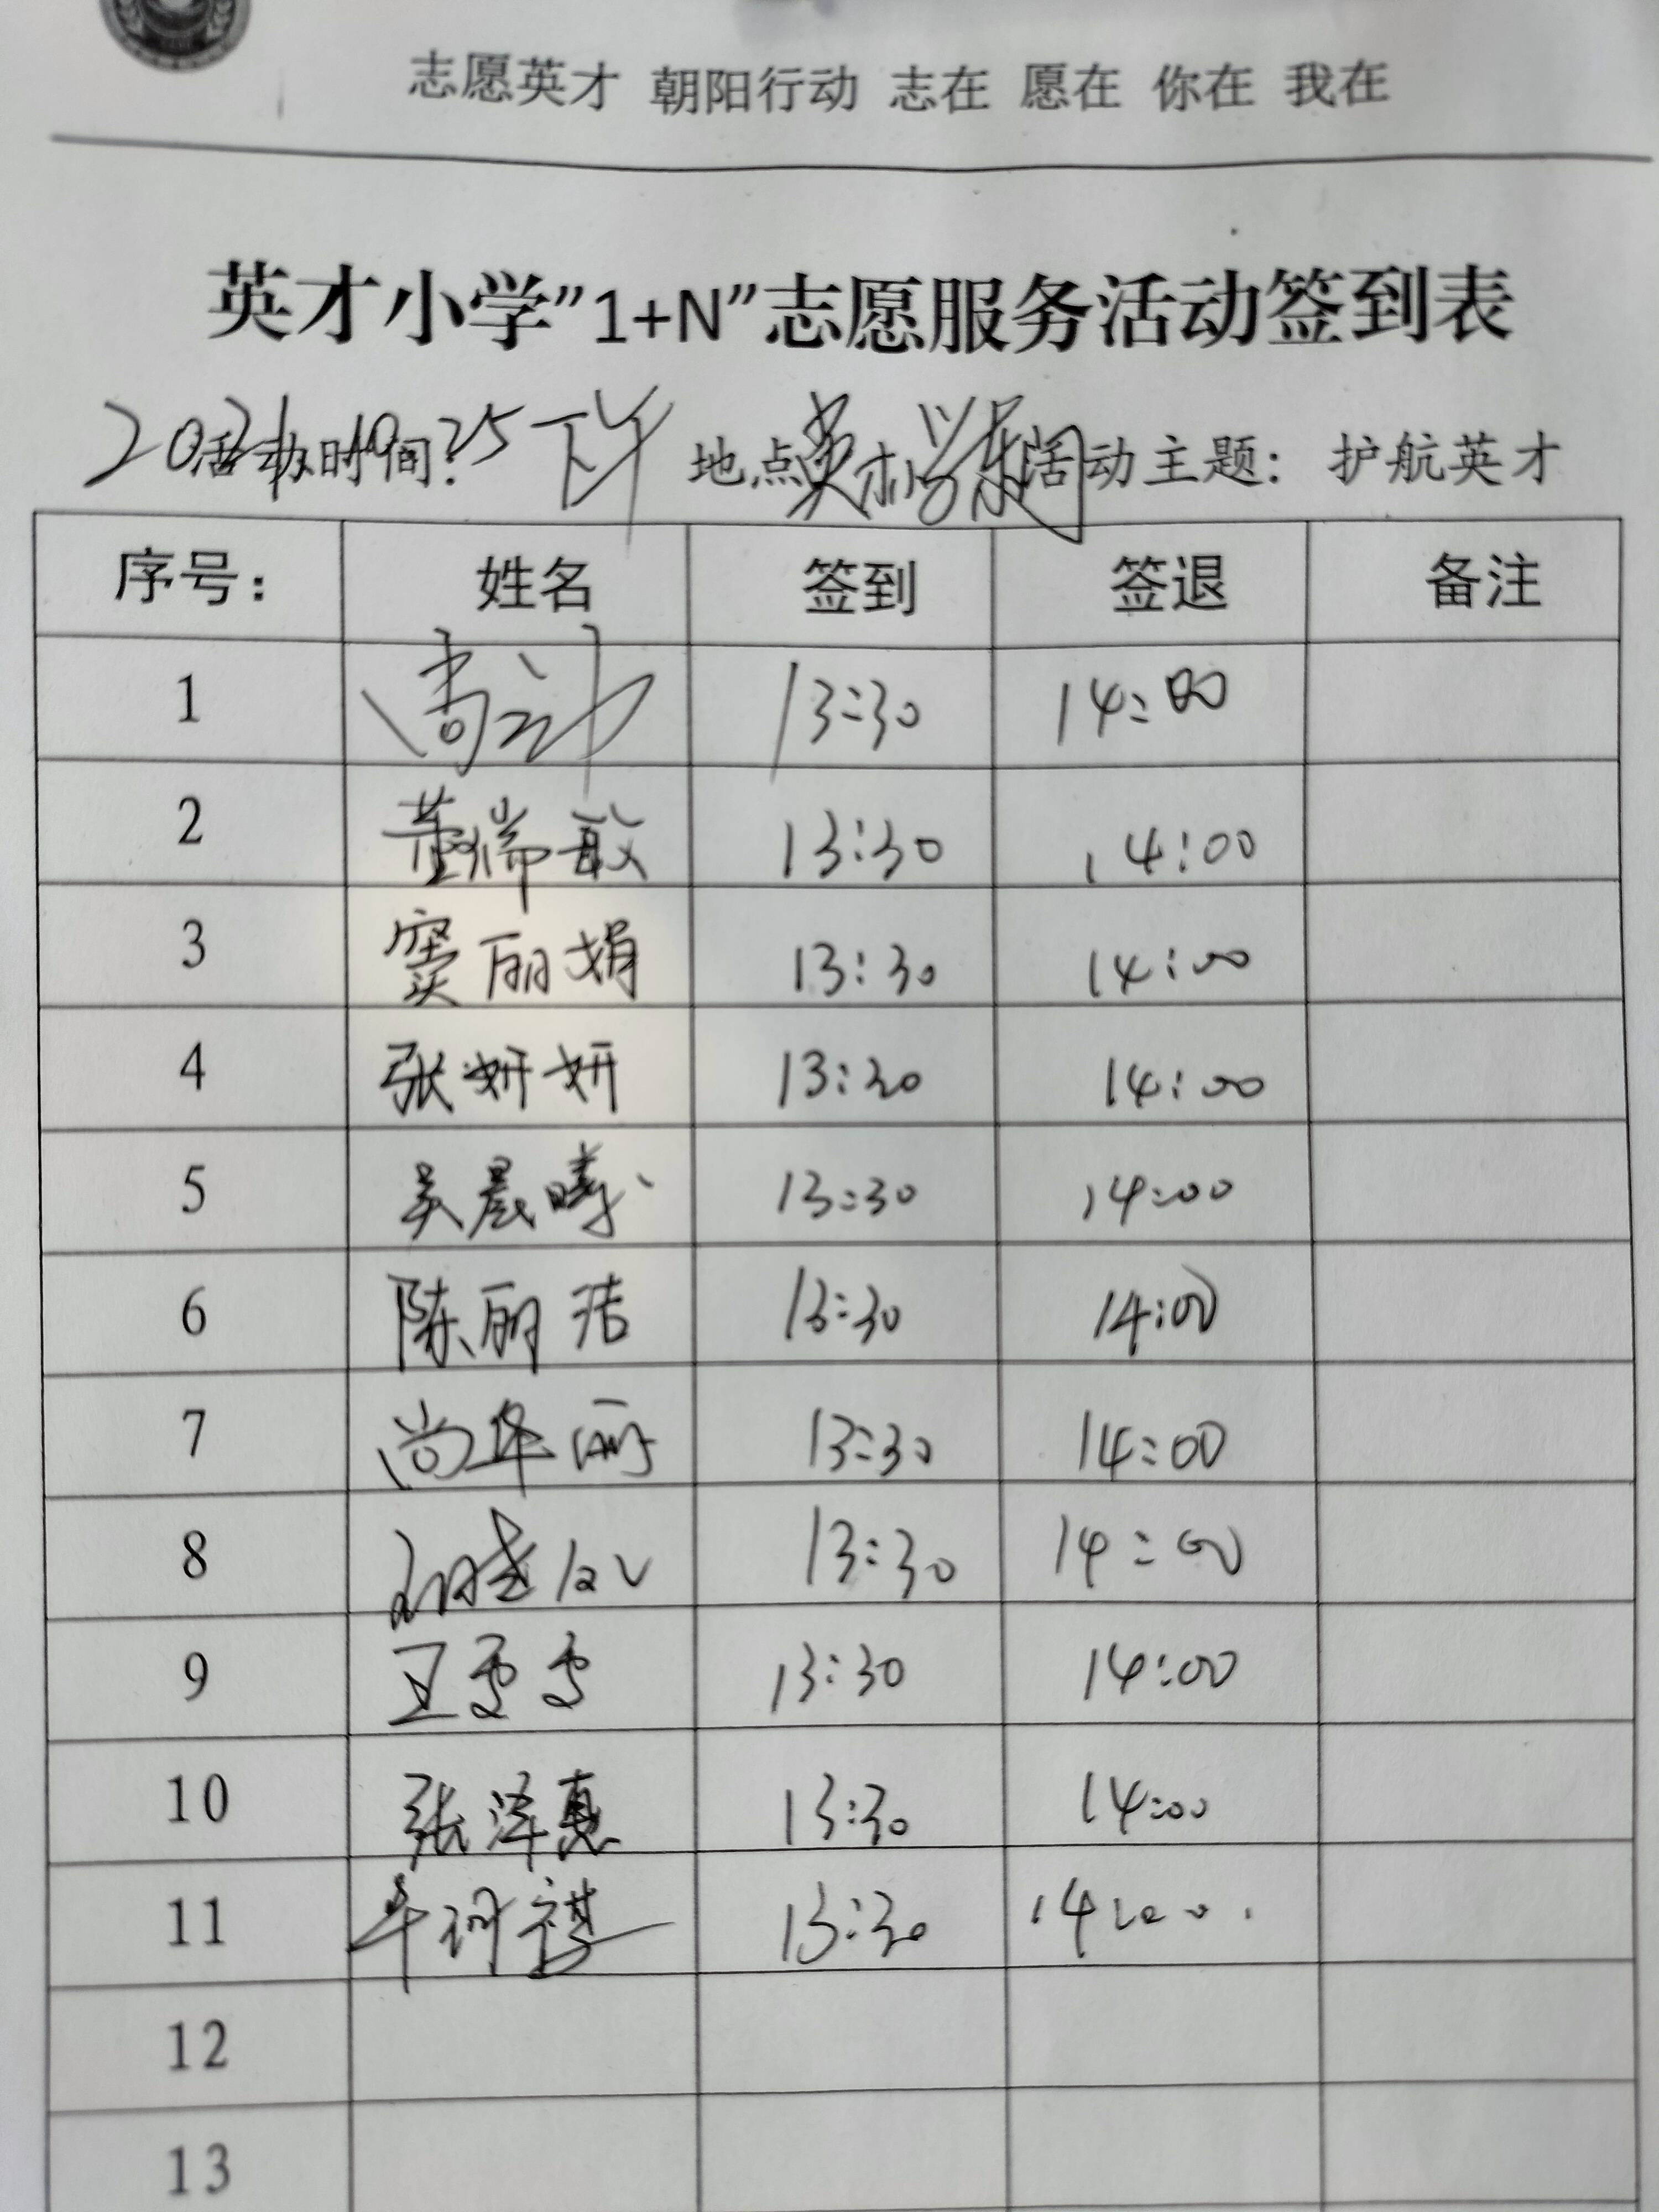 志愿英才 朝阳行动 志在 愿在 你在 我在
英才小学”1+N”志愿服务活动签到表
活动时间: 下午 地点 活动主题: 护航英才
序号: 姓名 签到 签退 备注
1 13:30 14:00
2 董瑞敏 13:30 14:00
3 窦丽娟 13:30 14:00
4 张妍妍 13:30 14:00
5 吴晨曦 13:30 14:00
6 陈丽洁 13:30 14:00
7 尚华丽 13:30 14:00
8 13:30 14:00
9 卫雪雪 13:30 14:00
10 张泽惠 13:30 14:00
11 牟珂祺 13:30 14:00
12
13